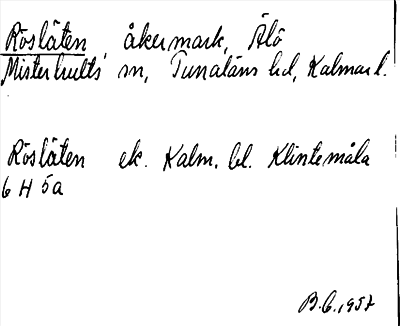 Röslåten, åkermark, Älö
Misterhults sn, Tunaläns hd, Kalmar l.
Röslåten ek. Kalm. bl. Klintemåla
6 H 5a
B.G. 1957